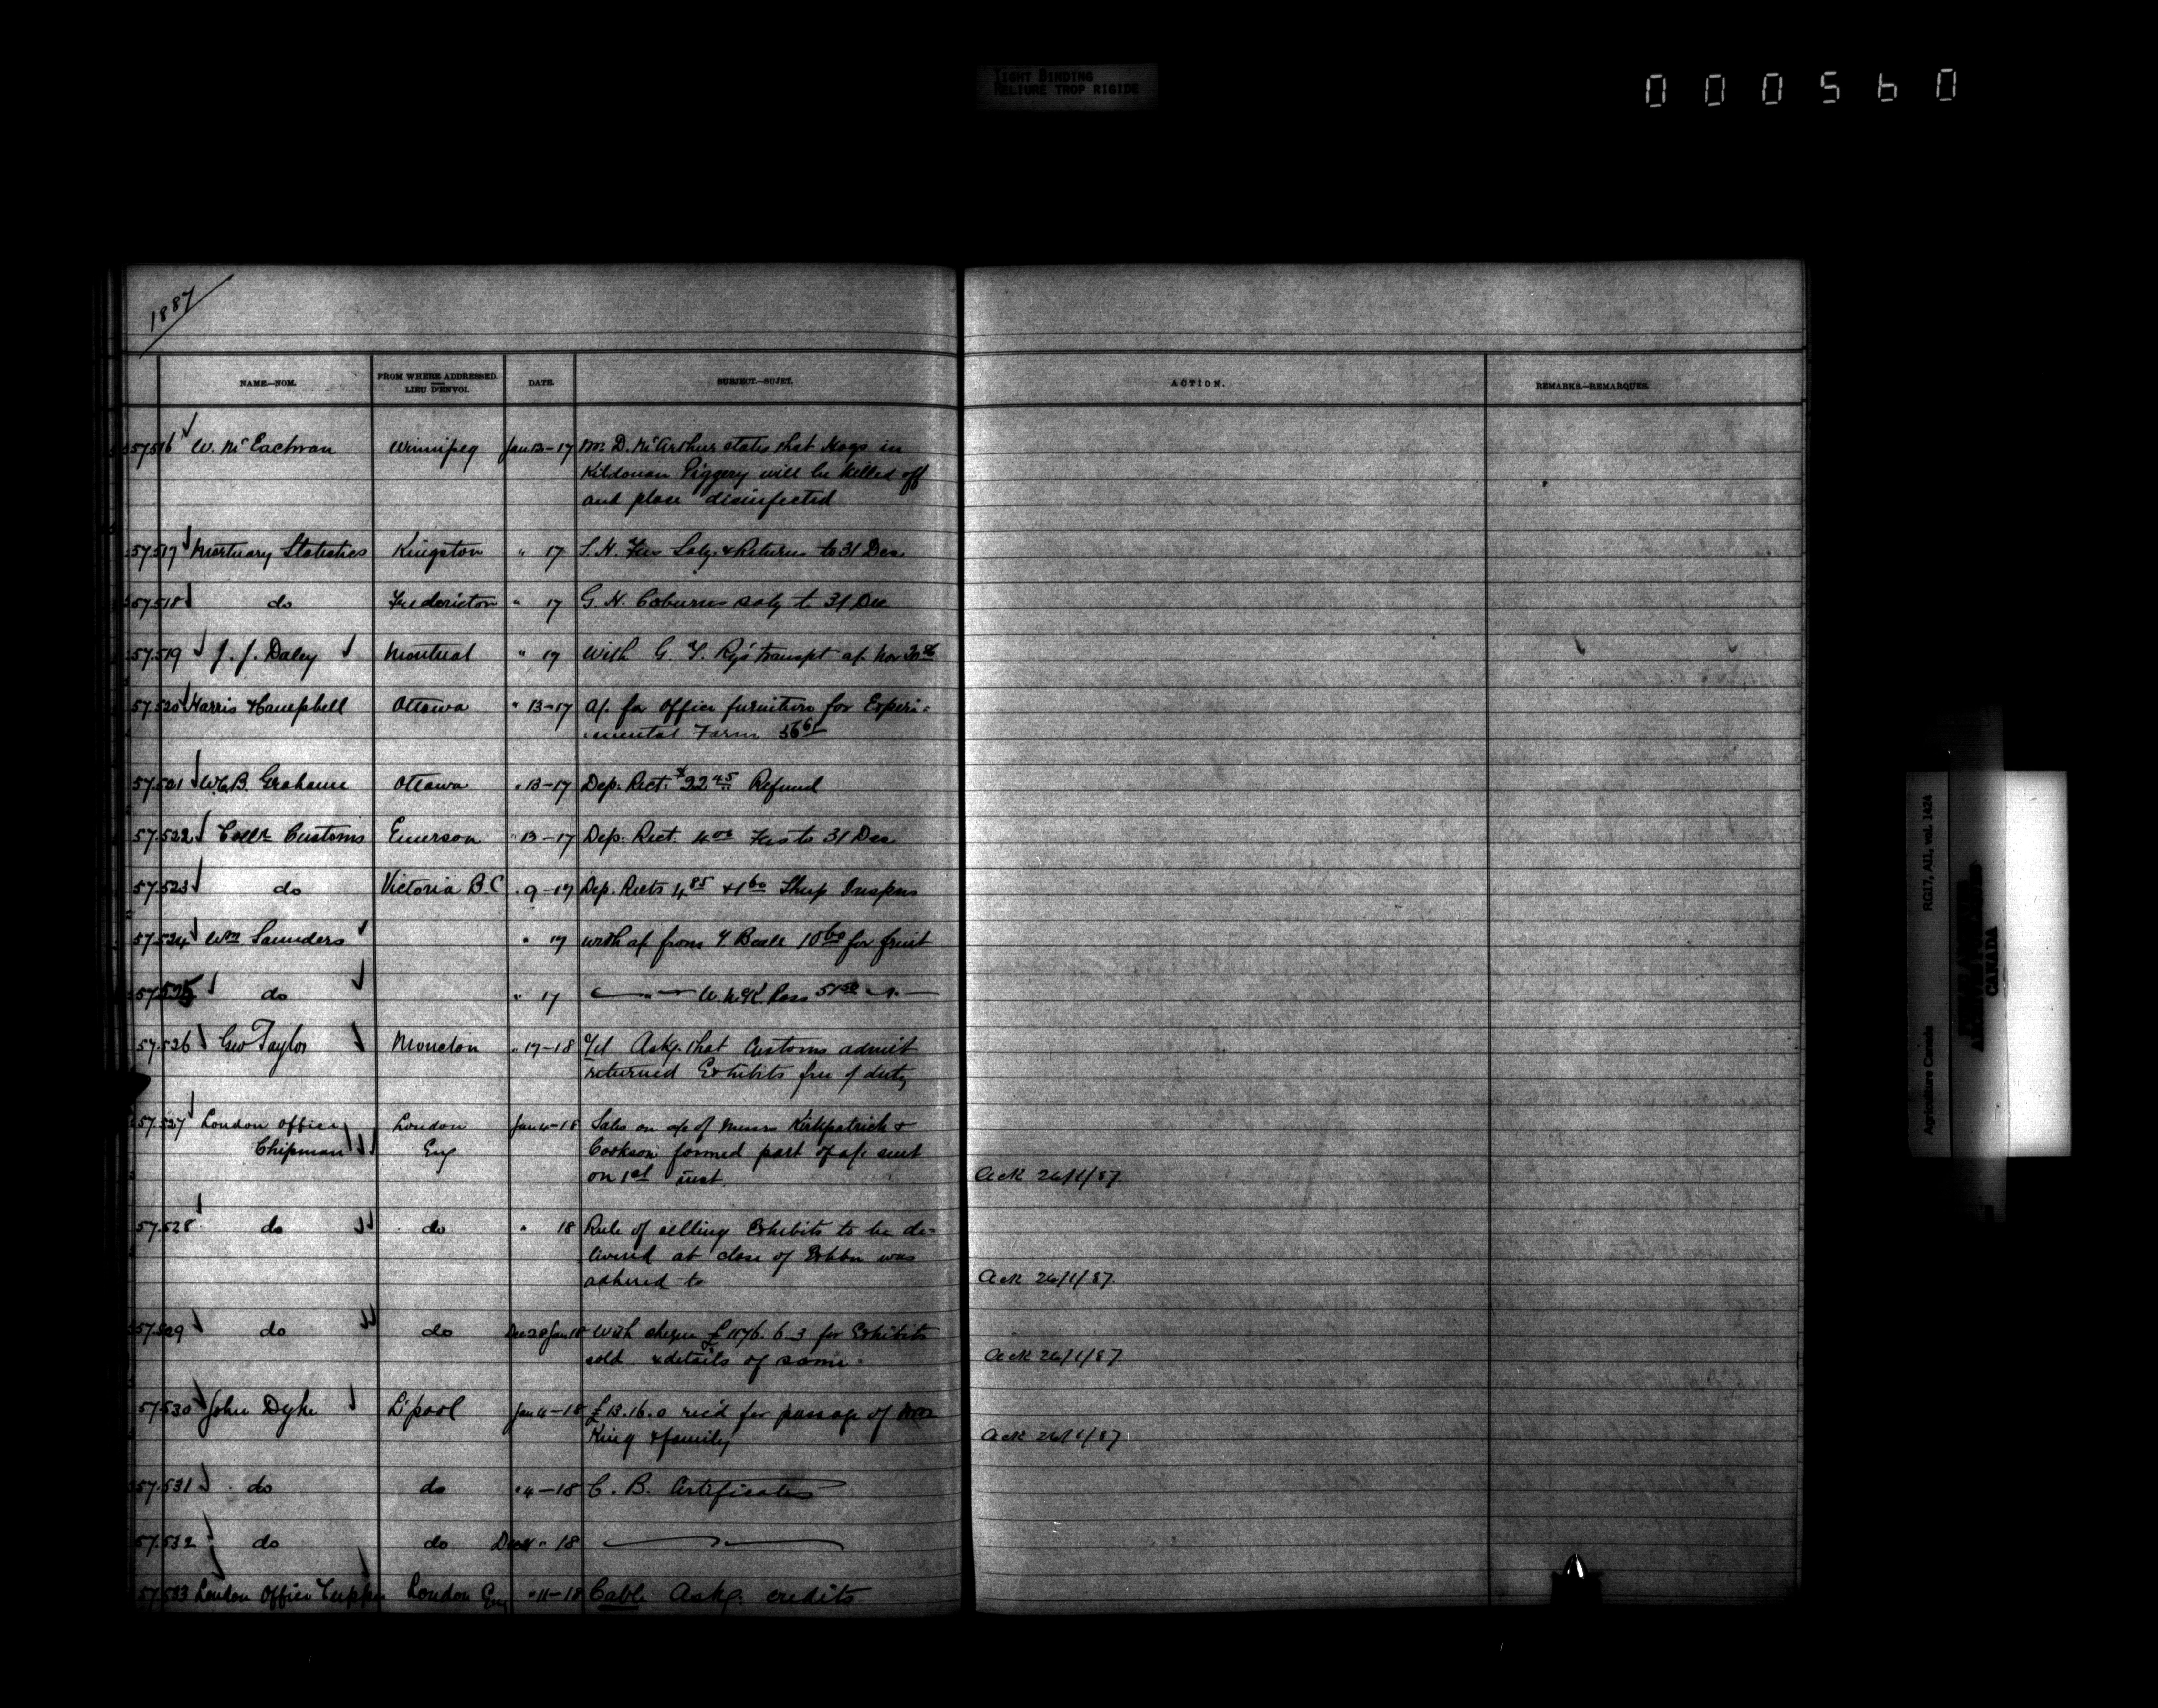 TIGHT BINDING
RELIURE TROP RIGIDE
000560
1887
NAME.—NOM. FROM WHERE ADDRESSED. LIEU D'ENVOI. DATE. SUBJECT.—SUJET. ACTION. REMARKS.—REMARQUES.
57.516 W. McEachran Winnipeg Jan 13-17 Mr. D. McArthur states that Hogs in
Kildonan Piggery will be killed off
and place disinfected
57.517 Mortuary Statistics Kingston " 17 Saly. & Returns to 31 Dec
57.518 do Fredericton " 17 G. H. Coburns saly to 31 Dec
57.519 J. J. Daley Montreal " 17 With G. T. Rys transpt a/c Nov
57.520 Harris & Campbell Ottawa " 13-17 a/c for office furniture for Experi-
-mental Farm
57.521 W.B. Grahame Ottawa " 13-17 Dep. Rect. $22 45 Refund
57.522 Collr Customs Emerson " 13-17 Dep. Rect. 4 00 Fees to 31 Dec
57.523 do Victoria B.C " 9-17 Dep. Rects 4 85 & 1 60 Sheep Inspns
57.524 Wm Saunders " 17 with a/c from T. Beall 10 60 for fruit
57.525 do " 17 — " — Pass 51 50 — " —
57.526 Geo Taylor Moncton " 17-18 Tel Askg. that Customs admit
returned Exhibits free of duty
57.527 London Office London Jan 4-18 Sales on a/c of Messrs Kirkpatrick &
Chipman Eng Cookson formed part of a/c sent
on 1st inst. Ack 26/1/87.
57.528 do do " 18 Rule of selling Exhibits to be de-
livered at close of Exhbn was
adhered to Ack 26/1/87.
57.529 do do Dec 30 Jan 18 With cheque £1176. 6-3 for Exhibits
sold & details of same Ack 26/1/87
57.530 John Dyke L'pool Jan 4-18 £13.16.0 rec'd for passage of
King & family Ack 26/1/87
57.531 do do " 4-18 C. B. Certificates
57.532 do do " 18 — " —
57.533 London Office Tupper London Eng " 11-18 Cable Askg. credits
Agriculture Canada RG17, AII, vol. 1424
CANADA